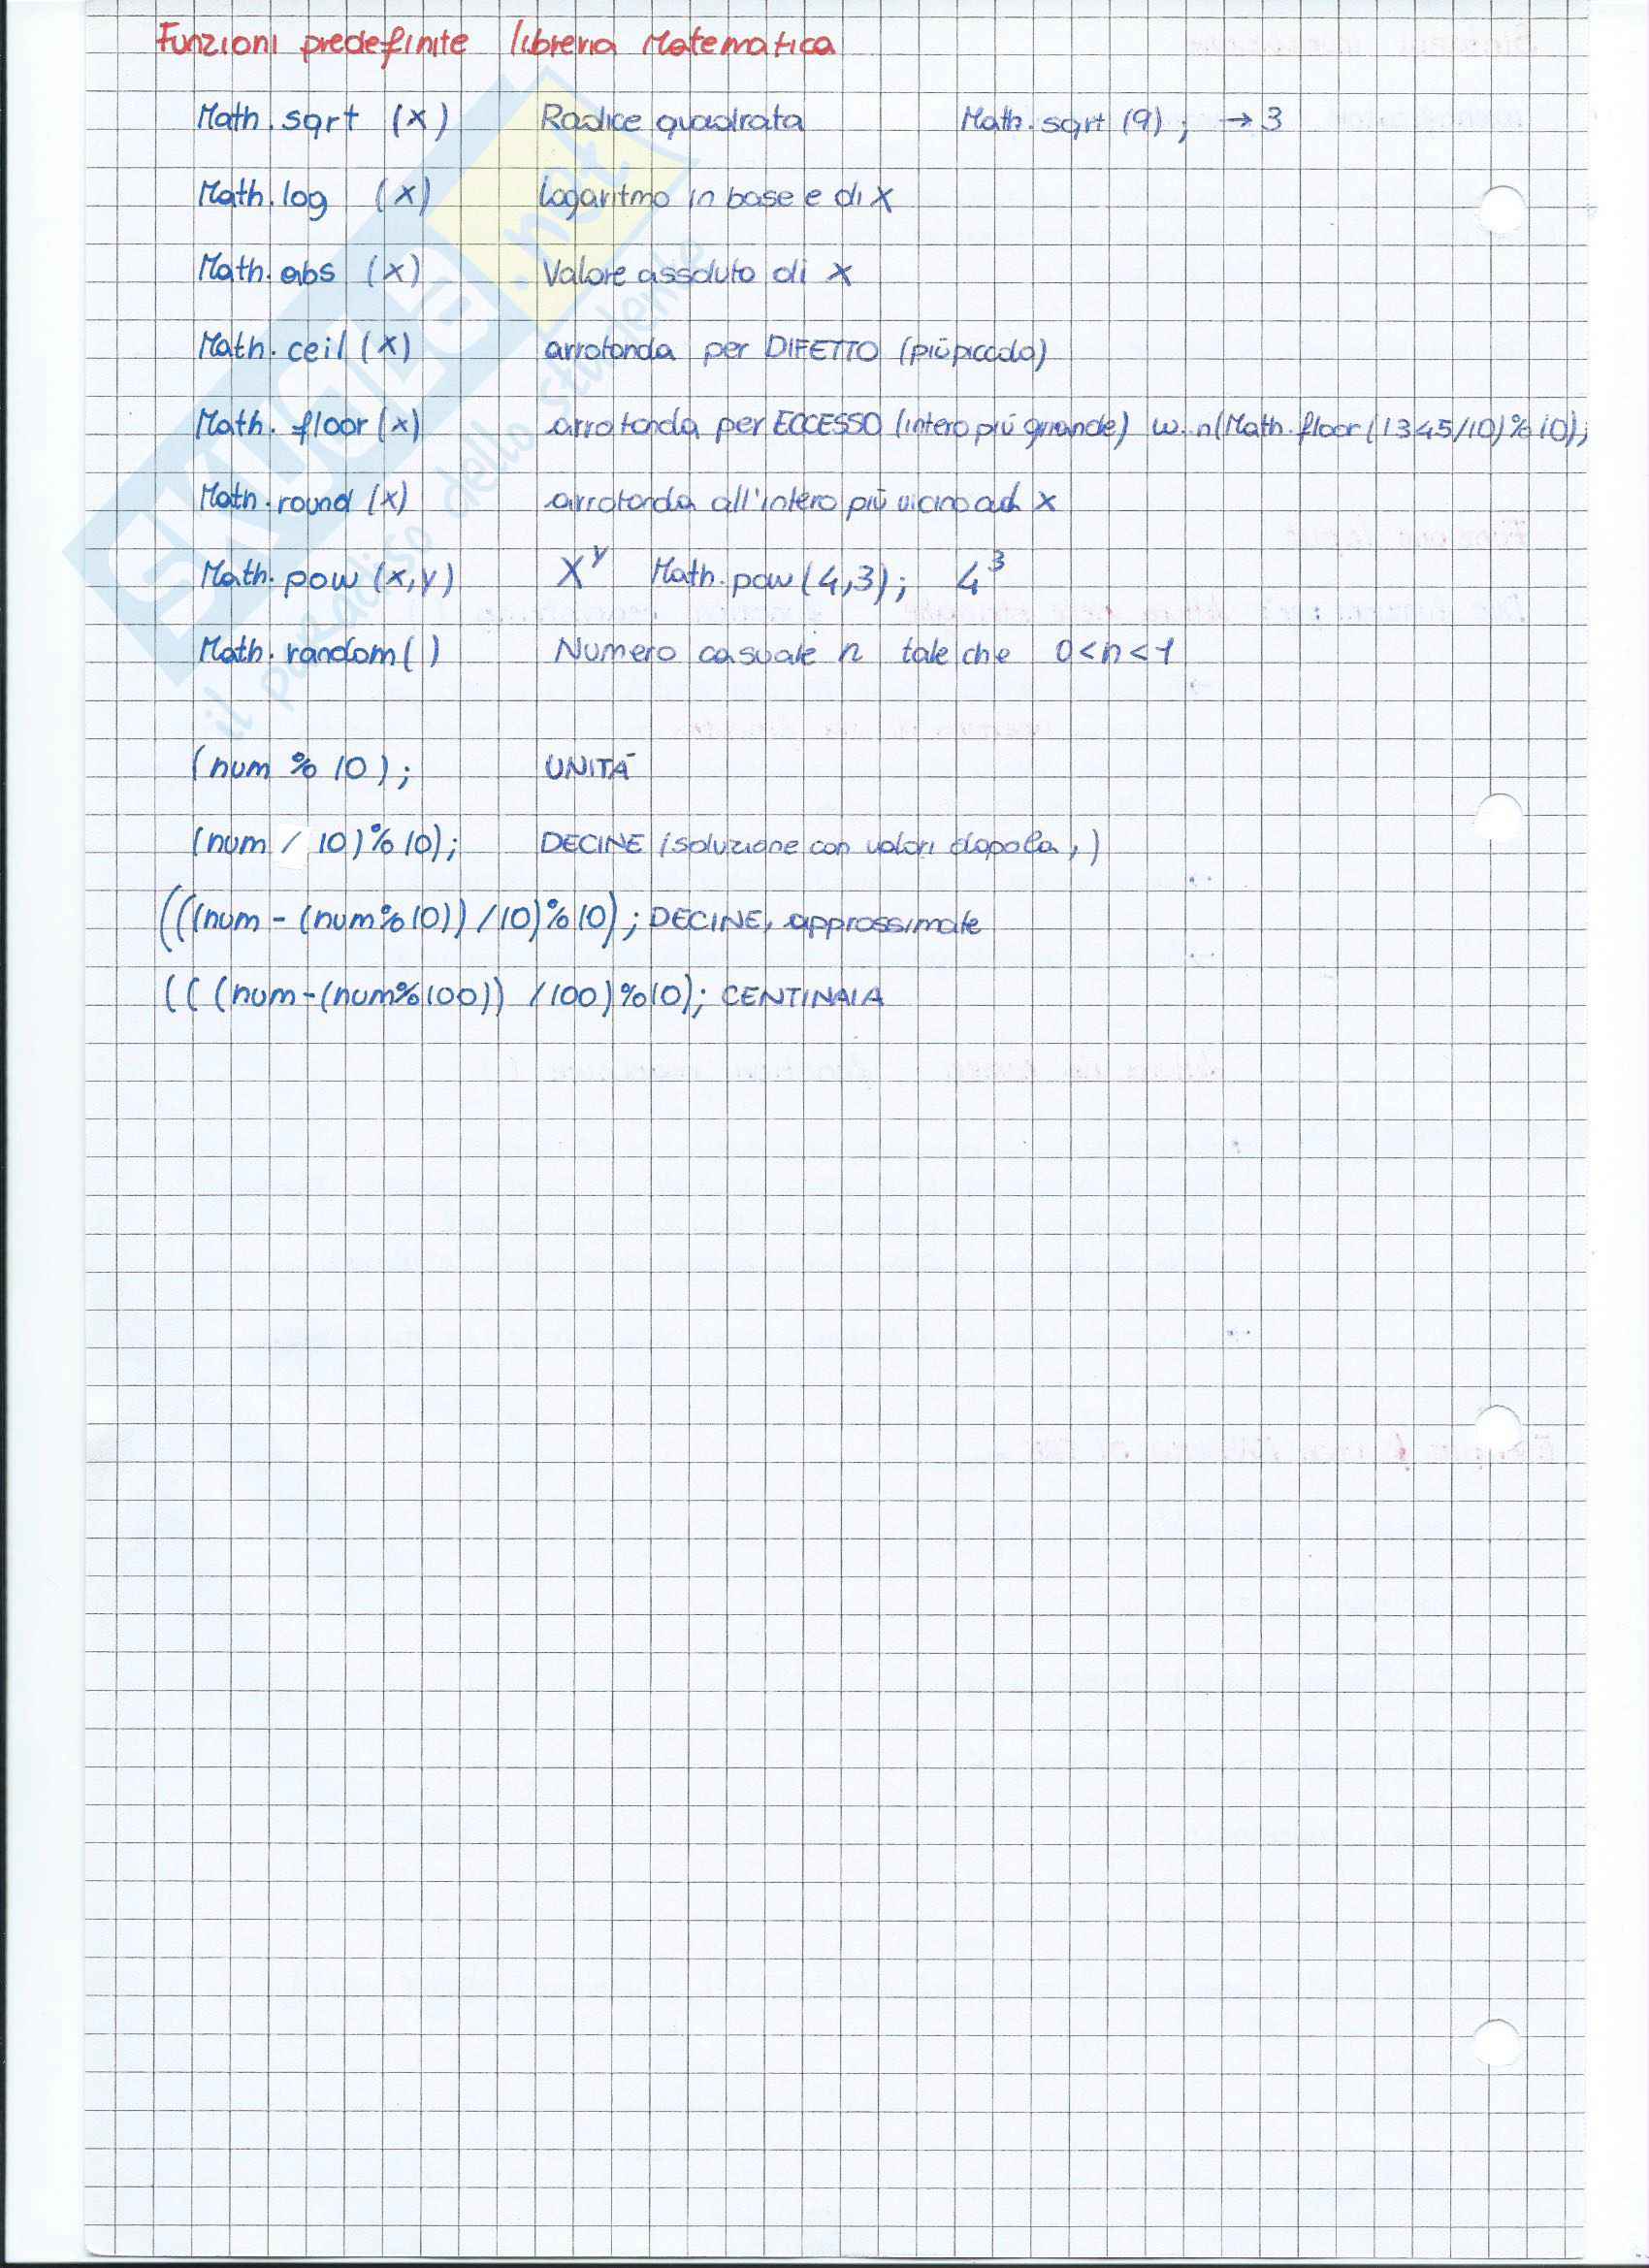 Funzioni predefinite libreria Matematica
Math.sqrt (x) Radice quadrata Math.sqrt (9); → 3
Math.log (x) Logaritmo in base e di X
Math.abs (x) Valore assoluto di x
Math.ceil (x) arrotonda per DIFETTO (più piccolo)
Math.floor (x) arrotonda per ECCESSO (intero più grande) w..n(Math.floor(1345/10)%10);
Math.round (x) arrotonda all'intero più vicino ad x
Math.pow (x,y) X^y Math.pow (4,3); 4^3
Math.random() Numero casuale n tale che 0<n<1
(num % 10); UNITÀ
(num / 10)%10); DECINE (soluzione con valori dopo la ,)
(((num - (num%10)) /10)%10); DECINE, approssimate
(((num-(num%100)) /100)%10); CENTINAIA
SKUOLA.net
il paradiso dello studente